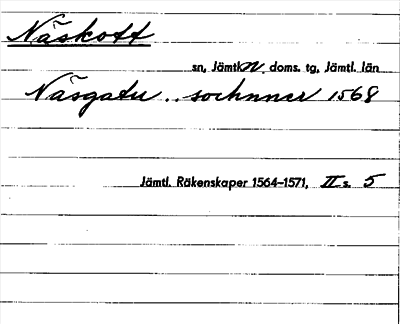 Näskott
sn, Jämtl. N. doms. tg, Jämtl. län
Näsgatu .. sochnnar 1568
Jämtl. Räkenskaper 1564–1571, II s. 5